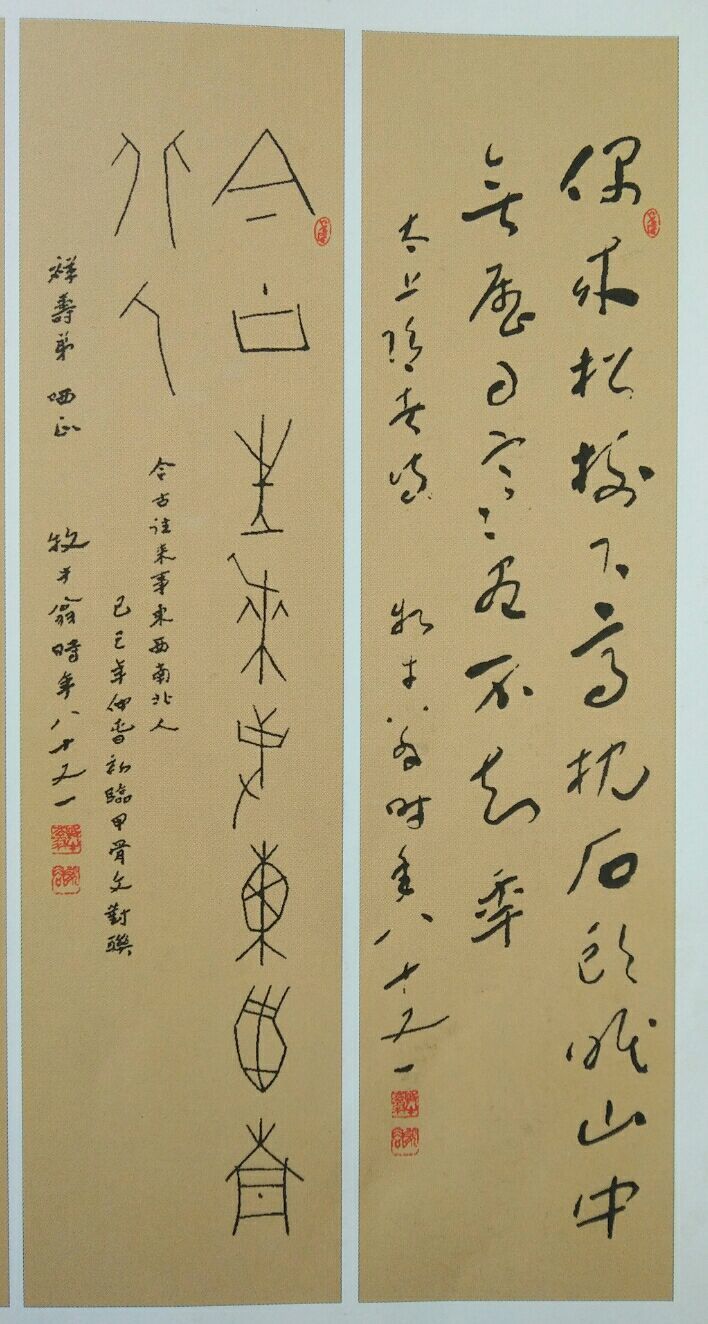 偶來松樹下高枕石頭眠山中
無歷日寒盡不知年
太上隱者詩 牧牛翁時年八十又一
今古往來事東西南
北人
今古往來事東西南北人
己巳年仲春初臨甲骨文對聯
祥壽弟 哂正 牧牛翁時年八十又一